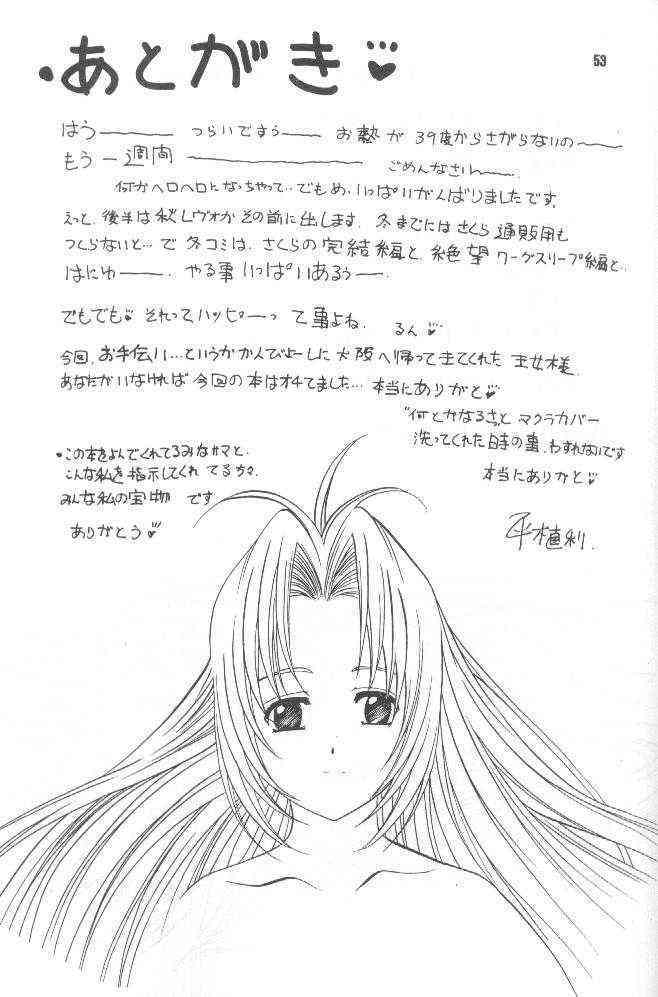 ・あとがき♥
53
はう―― つらいですぅ―― お熱が 39度からさがらないの――
もう一週間―――― ごめんなさい――.
何かヘロヘロになっちゃって‥でもめ、いっぱいがんばりましたです.
えっと、後半は秋レヴォかその前に出します. 冬までにはさくら通販用も
つくらないと…で 冬コミは、さくらの完結編と、絶望 ワーグスリープ編と‥
はにゅ――. やる事いっぱいあるぅ――.
でもでも♥ それってハッピーって事よね. るん♥
今回、お手伝い…というかかんびょーしに 大阪へ帰って来てくれた 王女様.
あなたがいなければ 今回の本はオチてました… 本当にありがと♥
"何とかなるさ"と マクラカバー
洗ってくれた時の事、わすれないです
本当にありがと♥
・この本をよんでくれてるみなサマと、
こんな私を指示してくれてる方々
みんな私の宝物 です
ありがとう♥
平植利.